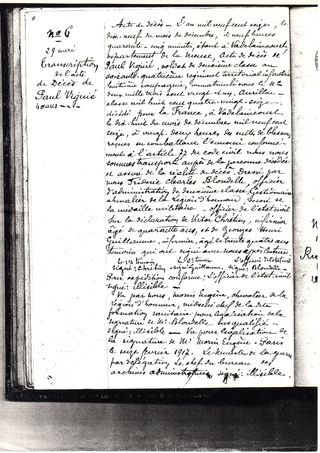 No 6
29 mai
Transcription
de l'acte
de Décès de
Paul Viguié
40 ans
Acte de décès – L'an mil neuf cent seize, le
dix-neuf du mois de décembre, à neuf heures
quarante-cinq minutes, étant à Vadelaincourt
département de la Meuse. Acte de décès de
Paul Viguié, soldat de deuxième classe au
soixante-quatrième régiment territorial infanterie
huitième compagnie, immatriculé sous le No
deux mille
classe mil huit cent quatre-vingt-seize,
décédé pour la France, à Vadelaincourt
le dix-huit du mois de décembre mil neuf cent
seize, à vingt-deux heures des suites de blessures
reçues en combattant l'ennemi conformé-
ment à l'article 77 du code civil nous nous
sommes transporté auprès de la personne décédée
et assuré de la réalité du décès. Dressé par
nous Frédéric Charles Blondelle, officier
d'administration de deuxième classe, gestionnaire
chevalier de la Légion d'honneur, décoré de
la médaille militaire officier de l'état civil
Sur la déclaration de Victor Chrétien, infirmier
âgé de quarante ans, et de Georges Henri
Guillaume, infirmier, âgé de trente quatre ans
témoins qui ont signé avec nous après lecture
Le 1er témoin Le 2e témoin L'officier d'état civil
signé: Chrétien signé: Guillaume. signé: Blondelle
Pour expédition conforme: L'officier de l'état civil
signé: illisible –
Vu par nous, Morin Eugène, chevalier de la
Légion d'honneur, médecin chef de la dite
formation sanitaire pour légalisation de la
signature de Mr Blondelle, susqualifié –
signé: illisible – Vu pour légalisation de
la signature de Mr Morin Eugène – Paris
le seize février 1917. Le Ministre de la guerre
par délégation. Le chef du bureau des
archives administratives signé: illisible.